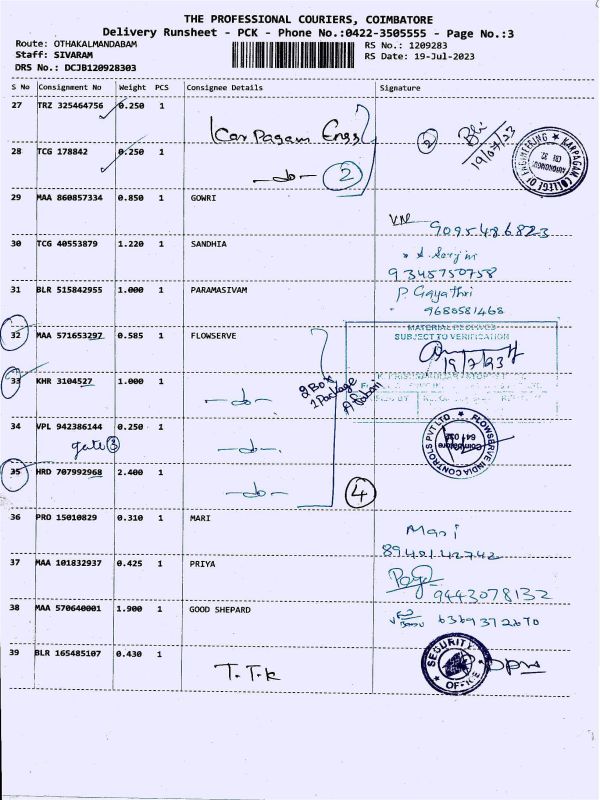 THE PROFESSIONAL COURIERS, COIMBATORE
Delivery Runsheet - PCK - Phone No.:0422-3505555 - Page No.:3
Route: OTHAKALMANDABAM RS No.: 1209283
Staff: SIVARAM RS Date: 19-Jul-2023
DRS No.: DCJB120928303
S No Consignment No Weight PCS Consignee Details Signature
27 TRZ 325464756 0.250 1 Karpagam Engg 2 19/07/23
KARPAGAM COLLEGE OF ENGINEERING
28 TCG 178842 0.250 1 -do- 2
29 MAA 860857334 0.850 1 GOWRI
9095486823
30 TCG 40553879 1.220 1 SANDHIA
9345750758
31 BLR 515842955 1.000 1 PARAMASIVAM P. Gayathri
9680581468
MATERIAL RECEIVED
SUBJECT TO VERIFICATION
32 MAA 571653297 0.585 1 FLOWSERVE
19/7/23
33 KHR 3104527 1.000 1 -do-
2 Box
1 Package
34 VPL 942386144 0.250 1 -do-
gate 3
FLOWSERVE INDIA CONTROLS PVT LTD
Coimbatore
35 HRD 707992968 2.400 1 -do- 4
36 PRO 15010829 0.310 1 MARI Mari
8940142742
37 MAA 101832937 0.425 1 PRIYA
9443078132
38 MAA 570640001 1.900 1 GOOD SHEPARD 6369372670
39 BLR 165485107 0.430 1 T.T.K
SECURITY OFFICE